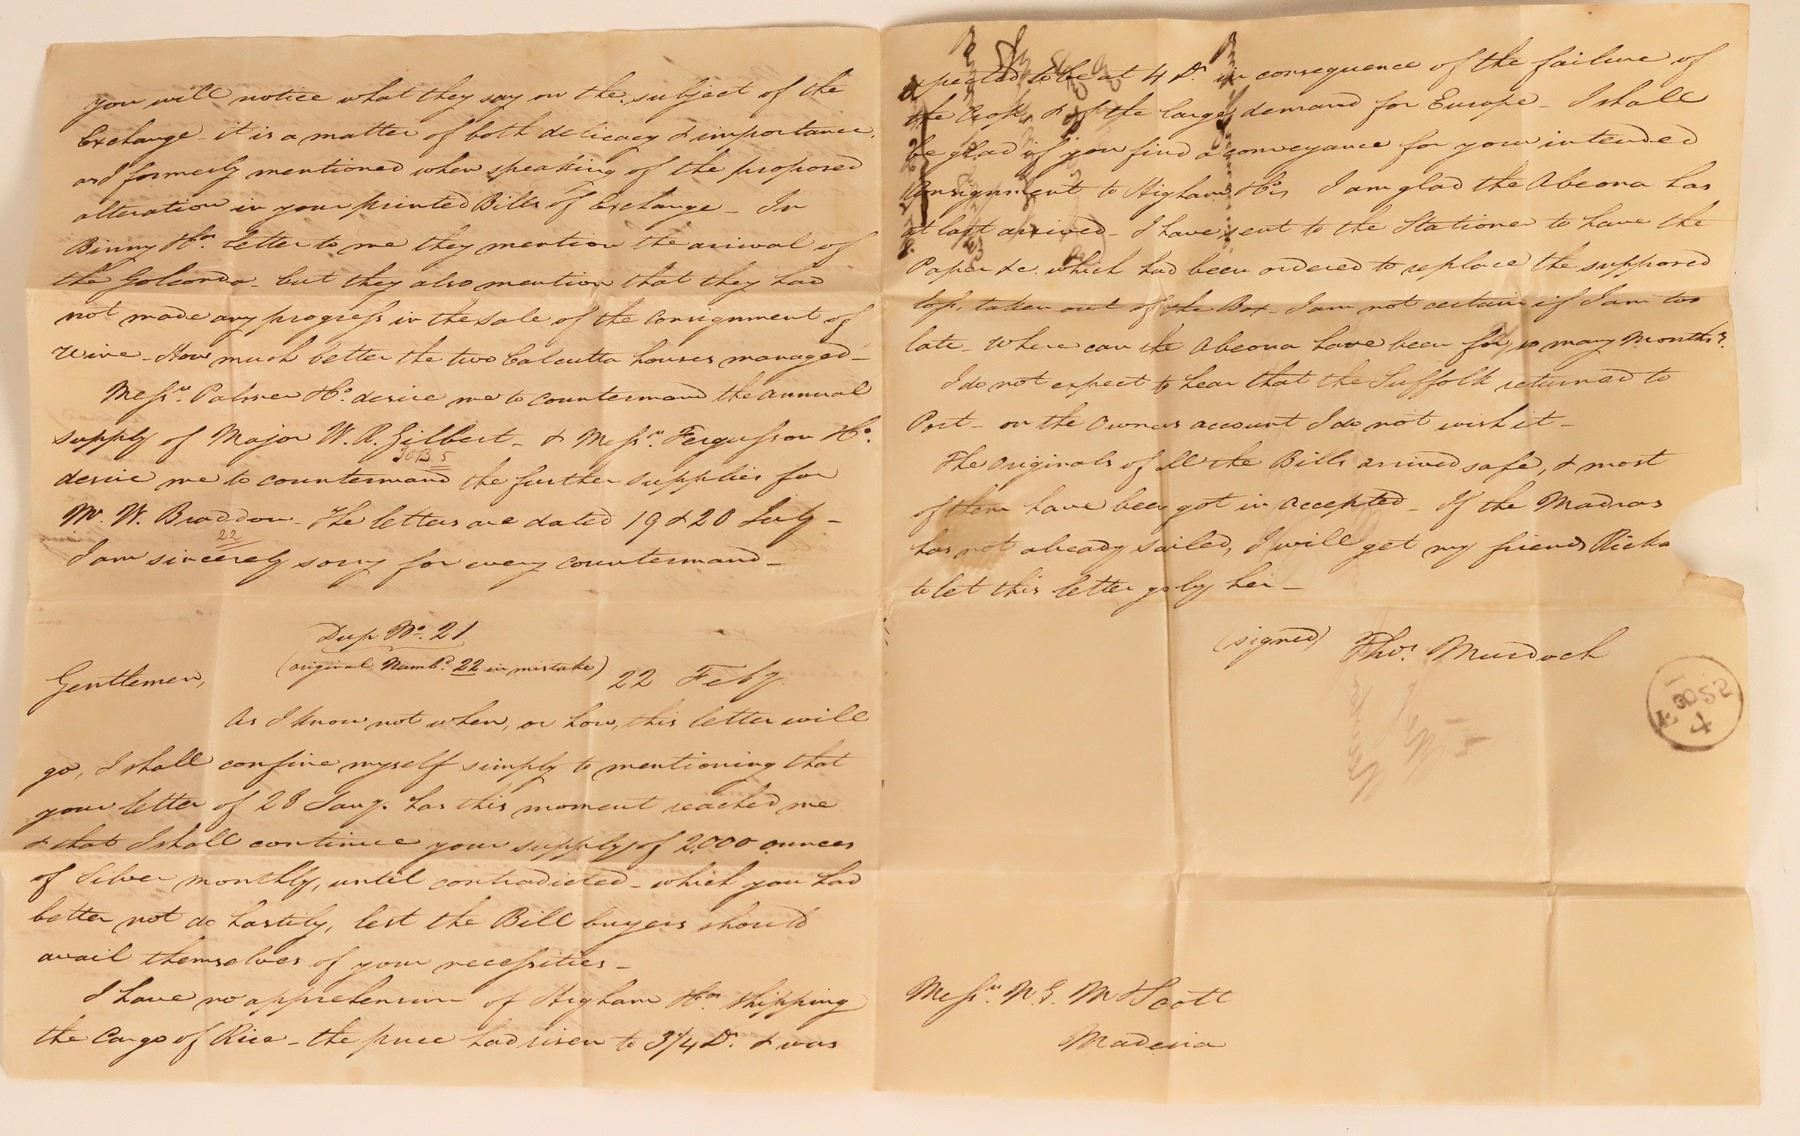 you will notice what they say on the subject of the
Exchange - it is a matter of both delicacy & importance.
as I formerly mentioned when speaking of the proposed
alteration in your printed Bills of Exchange - In
Binny & Cos letter to me they mention the arrival of
the Golconda - but they also mention that they had
not made any progress in the sale of the Consignment of
Wine - How much better the two Calcutta houses managed -
Messrs. Palmer & Co. desire me to countermand the annual
supply of Major W. R. Gilbert - & Messrs Fergusson & Co.
desire me to countermand the further supplies for
Mr. W. Braddon - The letters are dated 19 & 20 July -
22
I am sincerely sorry for every countermand -
Dup No. 21
(original Numbd. 22 in mistake)
Gentlemen, 22 Feby
As I know not when, or how, this letter will
go, I shall confine myself simply to mentioning that
your letter of 28 Jany. has this moment reached me
& that I shall continue your supply of 2000 ounces
of Silver monthly, until contradicted - which you had
better not do hastily, lest the Bill buyers should
avail themselves of your necessities -
I have no apprehension of Higham & Cos shipping
the Cargo of Rice - the price had risen to 3 3/4 Dr. & was
expected to be at 4 Dr in consequence of the failure of
the Crop, & of the large demand for Europe - I shall
be glad if you find a conveyance for your intended
Consignment to Higham & Co, I am glad the Abeona has
at last arrived - I have sent to the Stationer to have the
Paper &c. which had been ordered to replace the supposed
loss, taken out of the Box - I am not certain if I am too
late - Where can the Abeona have been for so many Months?
I do not expect to hear that the Suffolk returned to
Port - on the Owners account I do not wish it -
The originals of all the Bills arrived safe, & most
of them have been got in accepted - If the Madras
has not already sailed, I will get my friend Ricks
to let this letter go by her -
(signed) Thos. Murdoch
Messrs. N. G. M & Scott
Madeira